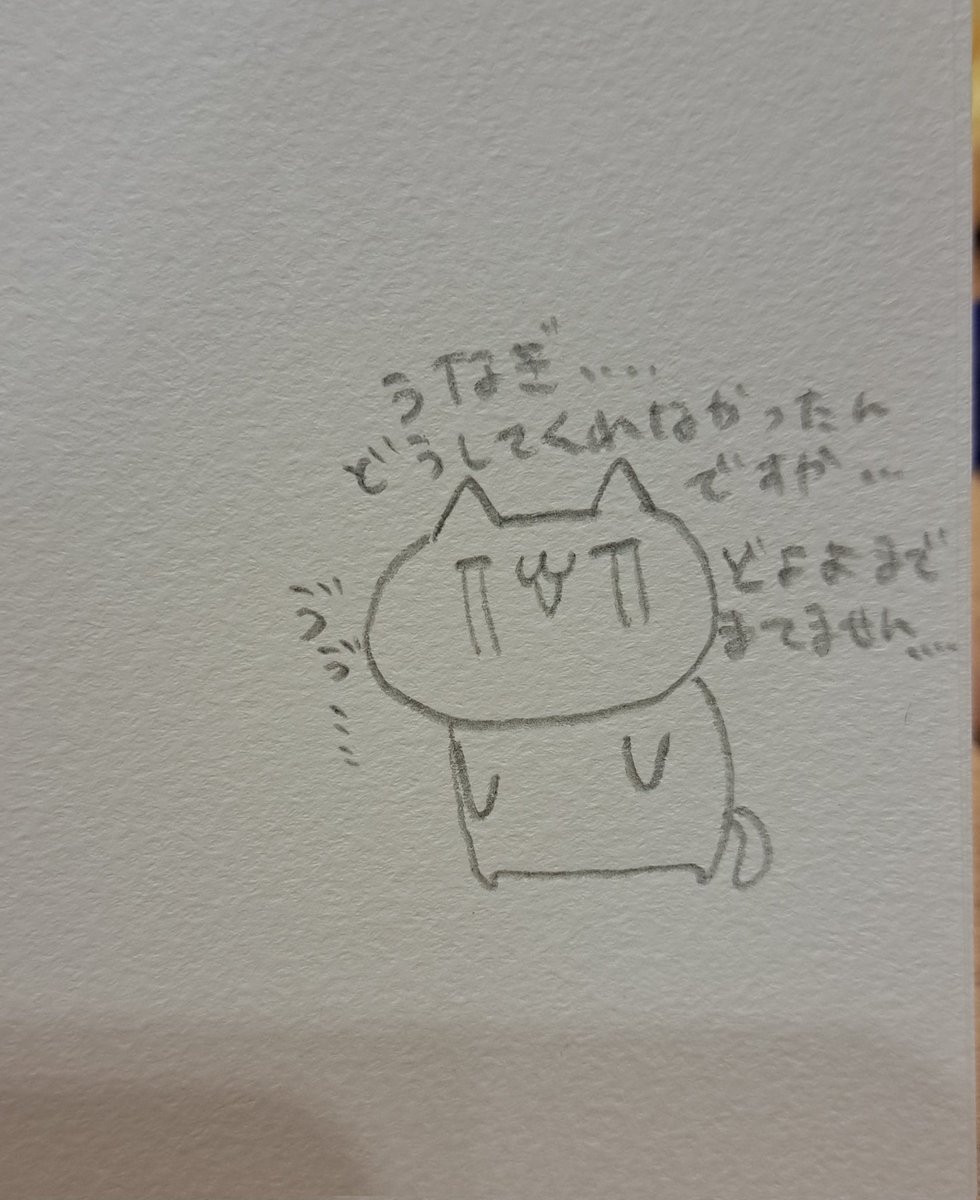 うなぎ....
どうしてくれなかったん
ですか...
どよよまで
まてません....
ゔ
ゔ
...